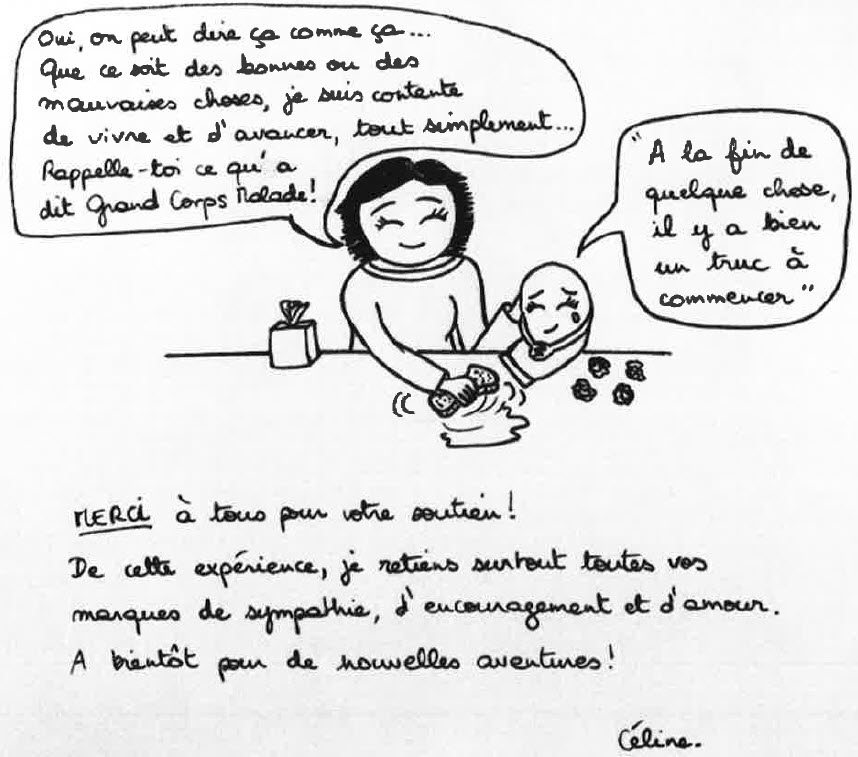 Oui, on peut dire ça comme ça...
Que ce soit des bonnes ou des
mauvaises choses, je suis contente
de vivre et d'avancer, tout simplement...
Rappelle-toi ce qu'a
dit Grand Corps Malade!
"A la fin de
quelque chose,
il y a bien
un truc à
commencer"
MERCI à tous pour votre soutien!
De cette expérience, je retiens surtout toutes vos
marques de sympathie, d'encouragement et d'amour.
A bientôt pour de nouvelles aventures!
Céline.